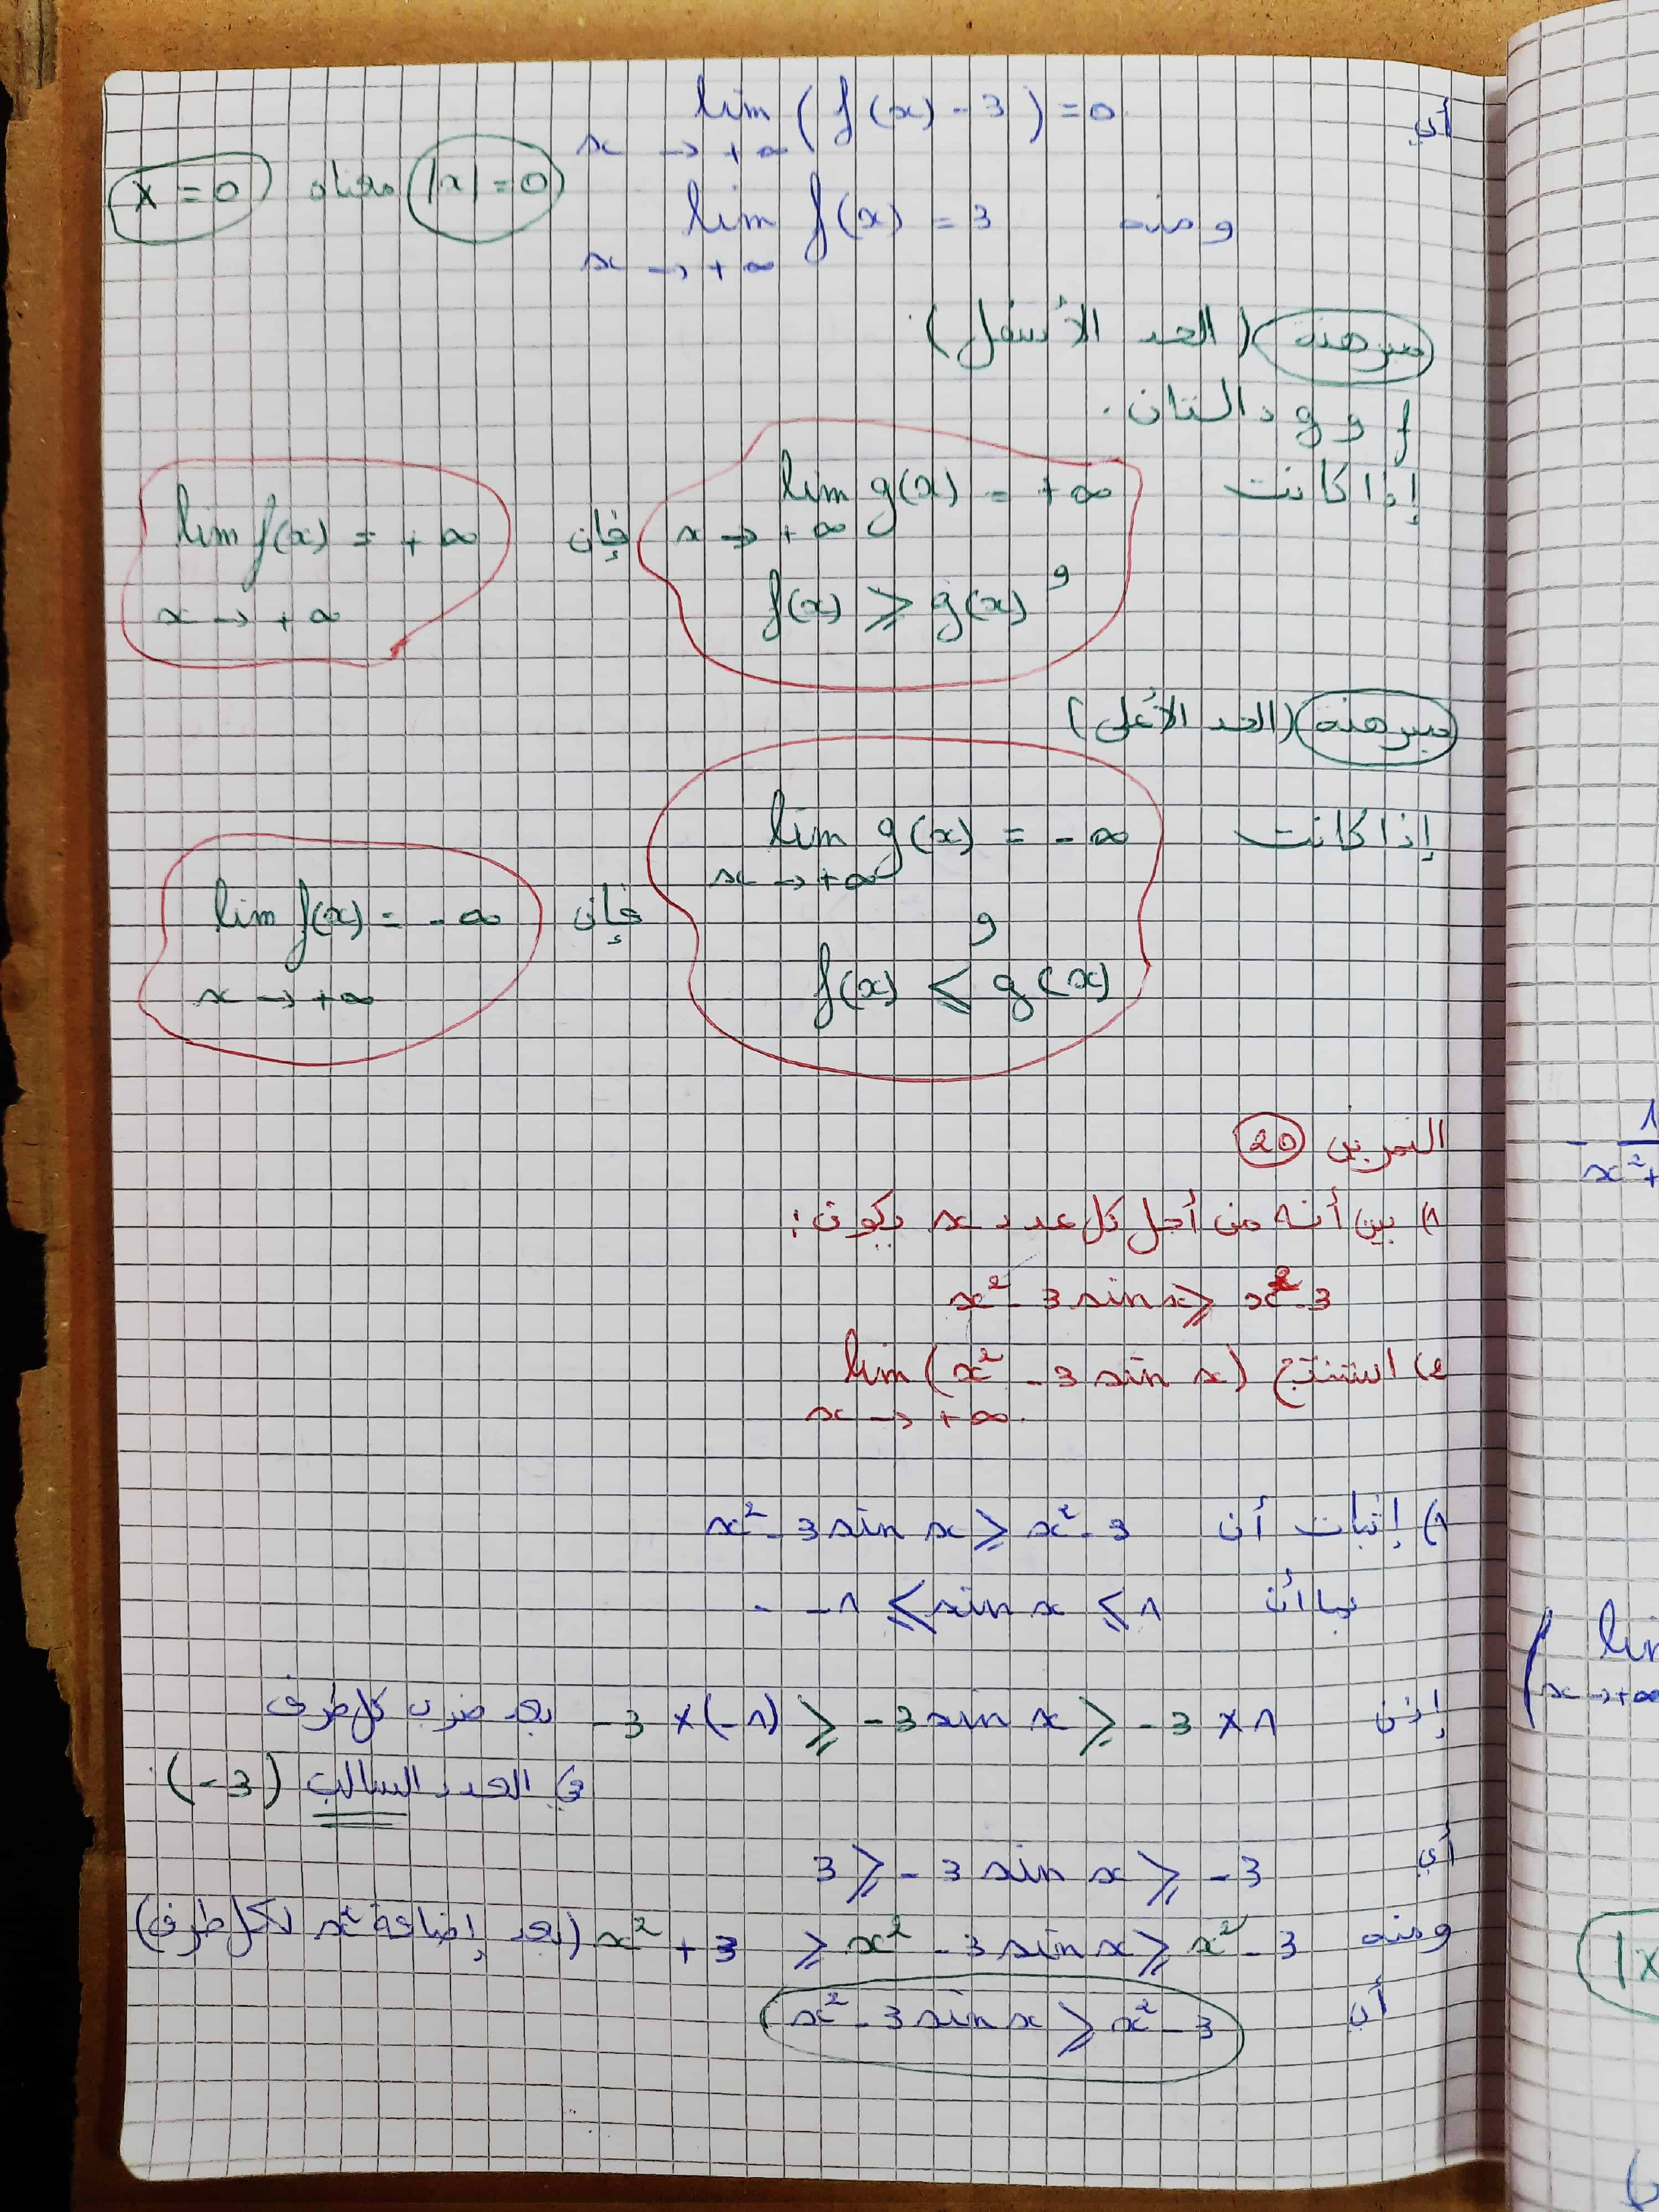 أي lim (f(x) - 3) = 0
x → +∞
ومنه lim f(x) = 3
x → +∞
|x| = 0 معناه x = 0
مبرهنة (الحد الأسفل)
f و g دالتان.
إذا كانت lim g(x) = +∞
x → +∞
و f(x) ⩾ g(x)
فإن lim f(x) = +∞
x → +∞
مبرهنة (الحد الأعلى)
إذا كانت lim g(x) = -∞
x → +∞
و
f(x) ⩽ g(x)
فإن lim f(x) = -∞
x → +∞
التمرين 20
1) بين أنه من أجل كل عدد x يكون:
x² - 3 sin x ⩾ x² - 3
2) استنتج lim (x² - 3 sin x)
x → +∞
1) إثبات أن x² - 3 sin x ⩾ x² - 3
بما أن -1 ⩽ sin x ⩽ 1
إذن -3 × (-1) ⩾ -3 sin x ⩾ -3 × 1 بعد ضرب كل طرف
في العدد السالب (-3).
أي 3 ⩾ -3 sin x ⩾ -3
ومنه x² + 3 ⩾ x² - 3 sin x ⩾ x² - 3 (بعد إضافة x² لكل طرف)
أي x² - 3 sin x ⩾ x² - 3
- 1
x² +
lim
x → +∞
|x